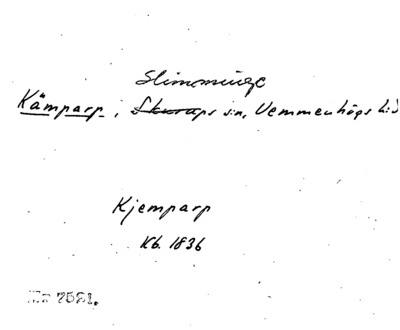 Slimminge
Kämparp, Skurups sn, Vemmenhögs hd
Kjemparp
Kb. 1836
Nr 7521.